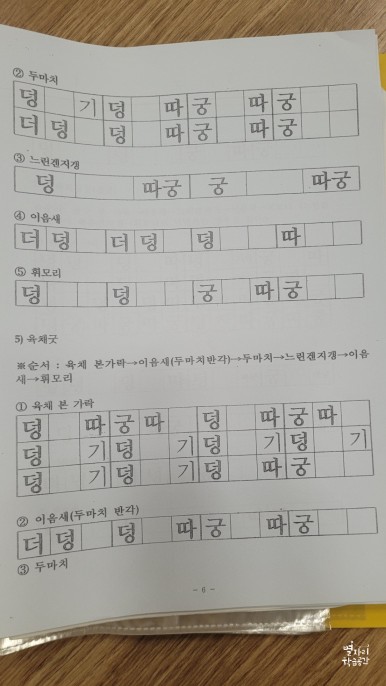 ② 두마치
덩 기 덩 따 궁 따 궁
더 덩 덩 따 궁 따 궁
③ 느린갠지갱
덩 따궁 궁 따궁
④ 이음새
더 덩 더 덩 덩 따
⑤ 휘모리
덩 덩 궁 따 궁
5) 육채굿
※순서 : 육채 본가락→이음새(두마치반각)→두마치→느린갠지갱→이음
새→휘모리
① 육채 본 가락
덩 따 궁 따 덩 따 궁 따
덩 기 덩 기 덩 기 덩 기
덩 기 덩 기 덩 따 궁
② 이음새(두마치 반각)
더 덩 덩 따 궁 따 궁
③ 두마치
- 6 -
별자리
학습공간